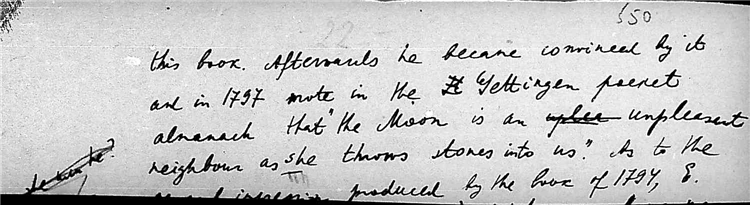 550
22
this book. Afterwards he became convinced by it
and in 1797 wrote in the Gettingen pocket
almanach that "the Moon is an unpleasant
neighbour as she throws stones into us". As to the
produced by the book of 1794, E.